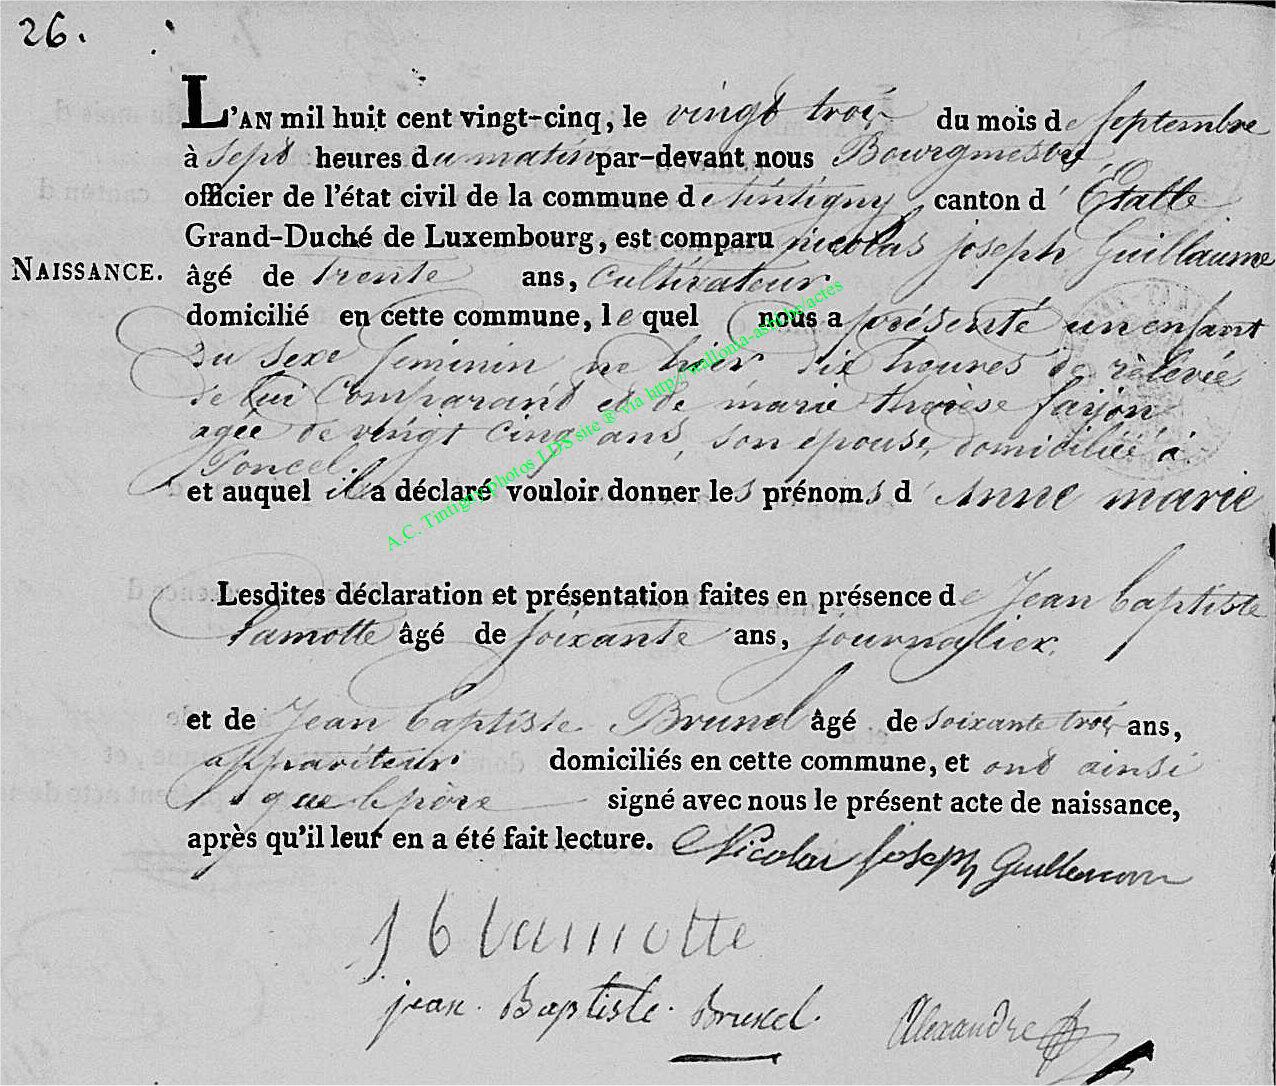 26.
L'AN mil huit cent vingt-cinq, le vingt trois du mois de septembre
à sept heures du matin par-devant nous Bourgmestre,
officier de l'état civil de la commune de tintigny canton d'Étalle
Grand-Duché de Luxembourg, est comparu nicolas joseph Guillaume
NAISSANCE.
âgé de trente ans, cultivateur
domicilié en cette commune, lequel nous a présenté un enfant
du sexe feminin né hier six heures de relevée
de lui Comparant et de marie thérèse fayon
agée de vingt cinq ans, son épouse, domiciliée à
Poncel.
et auquel il a déclaré vouloir donner les prénoms d Anne marie
Lesdites déclaration et présentation faites en présence de Jean baptiste
Lamotte âgé de soixante ans, journalier.
et de Jean baptiste Brunel âgé de soixante trois ans,
appariteur domiciliés en cette commune, et ont ainsi
que le père signé avec nous le présent acte de naissance,
après qu'il leur en a été fait lecture. Nicolas joseph Guillaume
J b lamotte
jean. Baptiste. Brunel.
Alexandre
A.C. Tintigny photos LDS site ® via http://wallonia-asbl.be/actes